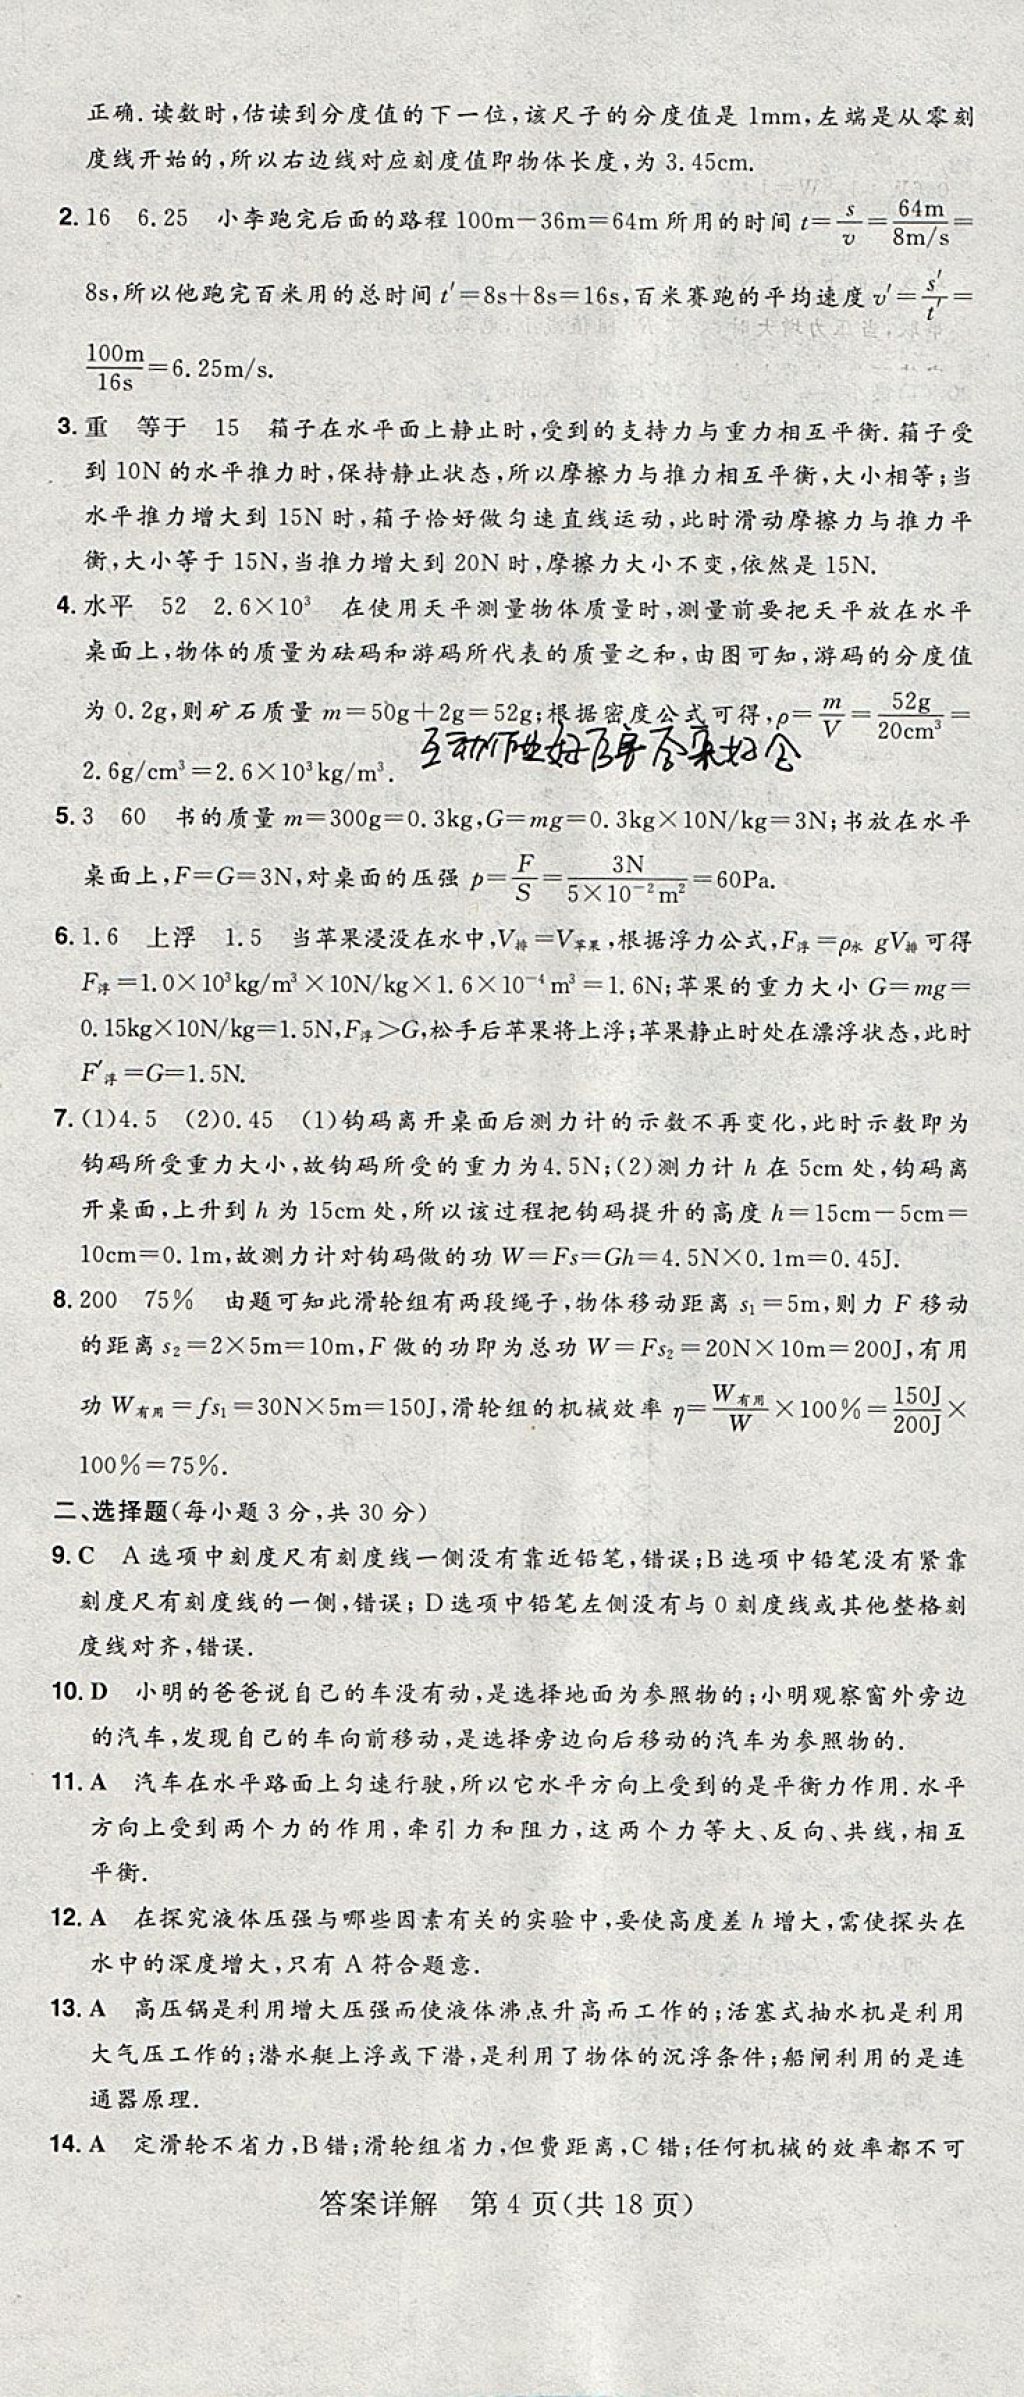 正确.读数时,估读到分度值的下一位,该尺子的分度值是1mm,左端是从零刻
度线开始的,所以右边线对应刻度值即物体长度,为3.45cm.
2. 16 6.25 小李跑完后面的路程100m-36m=64m所用的时间t=s/v=64m/8m/s=
8s,所以他跑完百米用的总时间t′=8s+8s=16s,百米赛跑的平均速度v′=s′/t′=
100m/16s=6.25m/s.
3. 重 等于 15 箱子在水平面上静止时,受到的支持力与重力相互平衡.箱子受
到10N的水平推力时,保持静止状态,所以摩擦力与推力相互平衡,大小相等;当
水平推力增大到15N时,箱子恰好做匀速直线运动,此时滑动摩擦力与推力平
衡,大小等于15N,当推力增大到20N时,摩擦力大小不变,依然是15N.
4. 水平 52 2.6×10³ 在使用天平测量物体质量时,测量前要把天平放在水平
桌面上,物体的质量为砝码和游码所代表的质量之和,由图可知,游码的分度值
为0.2g,则矿石质量m=50g+2g=52g;根据密度公式可得,ρ=m/V=52g/20cm³=
2.6g/cm³=2.6×10³kg/m³.
5. 3 60 书的质量m=300g=0.3kg,G=mg=0.3kg×10N/kg=3N;书放在水平
桌面上,F=G=3N,对桌面的压强p=F/S=3N/5×10⁻²m²=60Pa.
6. 1.6 上浮 1.5 当苹果浸没在水中,V排=V苹果,根据浮力公式,F浮=ρ水gV排可得
F浮=1.0×10³kg/m³×10N/kg×1.6×10⁻⁴m³=1.6N;苹果的重力大小G=mg=
0.15kg×10N/kg=1.5N,F浮>G,松手后苹果将上浮;苹果静止时处在漂浮状态,此时
F′浮=G=1.5N.
7. (1)4.5 (2)0.45 (1)钩码离开桌面后测力计的示数不再变化,此时示数即为
钩码所受重力大小,故钩码所受的重力为4.5N;(2)测力计h在5cm处,钩码离
开桌面,上升到h为15cm处,所以该过程把钩码提升的高度h=15cm-5cm=
10cm=0.1m,故测力计对钩码做的功W=Fs=Gh=4.5N×0.1m=0.45J.
8. 200 75% 由题可知此滑轮组有两段绳子,物体移动距离s₁=5m,则力F移动
的距离s₂=2×5m=10m,F做的功即为总功W=Fs₂=20N×10m=200J,有用
功W有用=fs₁=30N×5m=150J,滑轮组的机械效率η=W有用/W×100%=150J/200J×
100%=75%.
二、选择题(每小题3分,共30分)
9. C A选项中刻度尺有刻度线一侧没有靠近铅笔,错误;B选项中铅笔没有紧靠
刻度尺有刻度线的一侧,错误;D选项中铅笔左侧没有与0刻度线或其他整格刻
度线对齐,错误.
10. D 小明的爸爸说自己的车没有动,是选择地面为参照物的;小明观察窗外旁边
的汽车,发现自己的车向前移动,是选择旁边向后移动的汽车为参照物的.
11. A 汽车在水平路面上匀速行驶,所以它水平方向上受到的是平衡力作用.水平
方向上受到两个力的作用,牵引力和阻力,这两个力等大、反向、共线,相互
平衡.
12. A 在探究液体压强与哪些因素有关的实验中,要使高度差h增大,需使探头在
水中的深度增大,只有A符合题意.
13. A 高压锅是利用增大压强而使液体沸点升高而工作的;活塞式抽水机是利用
大气压工作的;潜水艇上浮或下潜,是利用了物体的沉浮条件;船闸利用的是连
通器原理.
14. A 定滑轮不省力,B错;滑轮组省力,但费距离,C错;任何机械的效率都不可
答案详解 第4页(共18页)